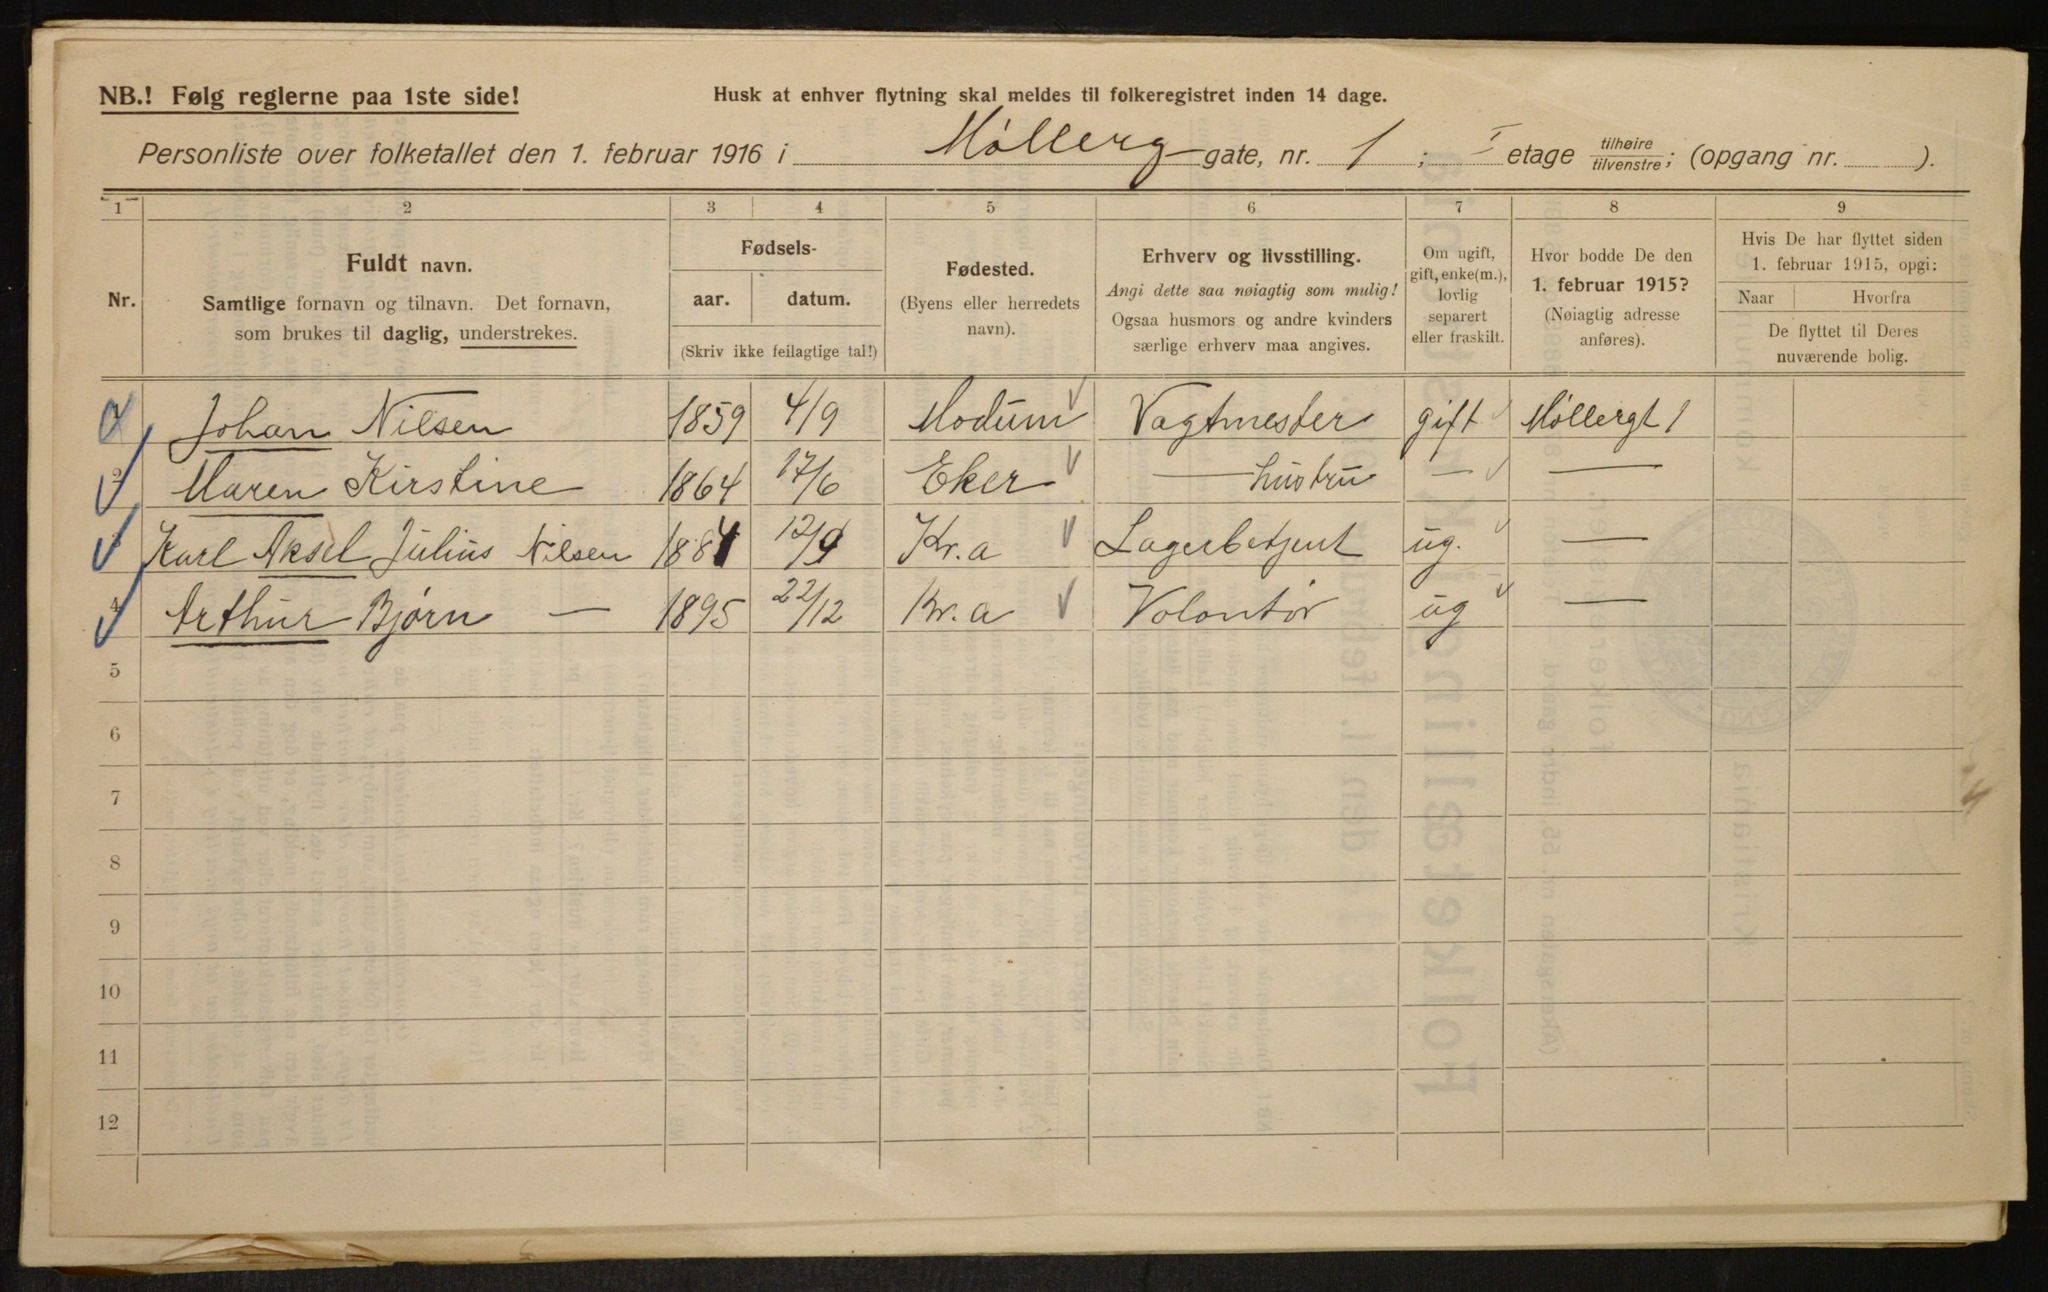 NB.! Følg reglerne paa 1ste side!
Husk at enhver flytning skal meldes til folkeregistret inden 14 dage.
Personliste over folketallet den 1. februar 1916 i Møllerg gate, nr. 1 ; I etage tilhøire/tilvenstre; (opgang nr. ).
1 2 3 4 5 6 7 8 9
Nr.
Fuldt navn.
Samtlige fornavn og tilnavn. Det fornavn,
som brukes til daglig, understrekes.
Fødsels-
aar. datum.
(Skriv ikke feilagtige tal!)
Fødested.
(Byens eller herredets
navn).
Erhverv og livsstilling.
Angi dette saa nøiagtig som mulig!
Ogsaa husmors og andre kvinders
særlige erhverv maa angives.
Om ugift,
gift, enke(m.),
lovlig
separert
eller fraskilt.
Hvor bodde De den
1. februar 1915?
(Nøiagtig adresse
anføres).
Hvis De har flyttet siden
1. februar 1915, opgi:
Naar Hvorfra
De flyttet til Deres
nuværende bolig.
Johan Nilsen 1859 4/9 Modum Vagtmester gift Møllergt 1
2 Maren Kirstine 1864 17/6 Eker — hustru — —
Karl Aksel Julius Nilsen 1881 12/9 Kr.a Lagerbetjent ug. —
4 Arthur Bjørn — 1895 22/12 Kr.a Volontør ug —
5
6
7
8
9
10
11
12